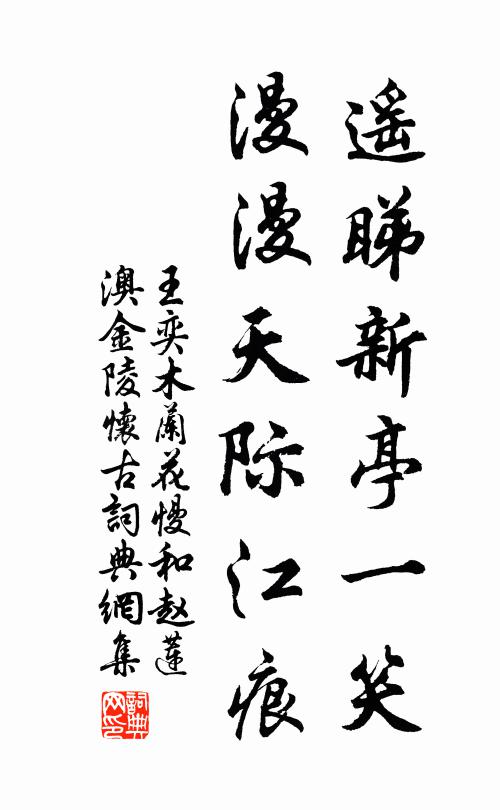 遥睇新亭一笑
漫漫天际江痕
王奕木蘭花慢和赵莲
澳金陵懷古詞典網集
詞典
网印